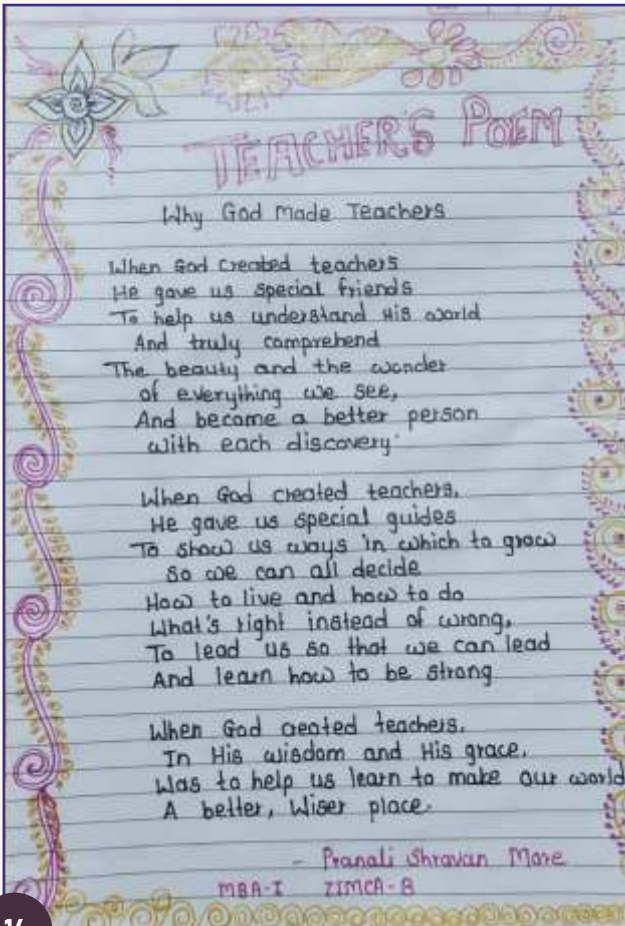 TEACHER'S POEM
Why God made Teachers
When God created teachers
He gave us special friends
To help us understand His world
And truly comprehend
The beauty and the wonder
of everything we see,
And become a better person
with each discovery.
When God created teachers,
He gave us special guides
To show us ways in which to grow
So we can all decide
How to live and how to do
What's right instead of wrong,
To lead us so that we can lead
And learn how to be strong
When God created teachers,
In His wisdom and His grace,
Was to help us learn to make our world
A better, Wiser place.
- Pranali Shravan More
MBA-I ZIMCA-B